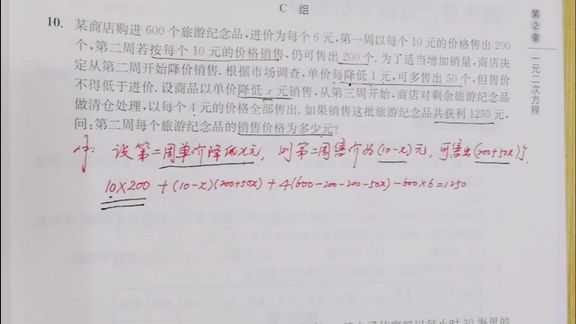 C 组
10. 某商店购进 600 个旅游纪念品，进价为每个 6 元，第一周以每个 10 元的价格售出 200
个，第二周若按每个 10 元的价格销售，仍可售出 200 个。为了适当增加销量，商店决
定从第二周开始降价销售．根据市场调查，单价每降低 1 元，可多售出 50 个，但售价
不得低于进价．设商品以单价降低 x 元销售，从第三周开始，商店对剩余旅游纪念品
做清仓处理，以每个 4 元的价格全部售出．如果销售这批旅游纪念品共获利 1250 元，
问：第二周每个旅游纪念品的销售价格为多少元？
解: 设第二周单价降低x元，则第二周售价为(10-x)元，可售出(200+50x)个.
10×200 +(10-x)(200+50x)+4(600-200-200-50x)-600×6=1250
第2章
一元二次方程